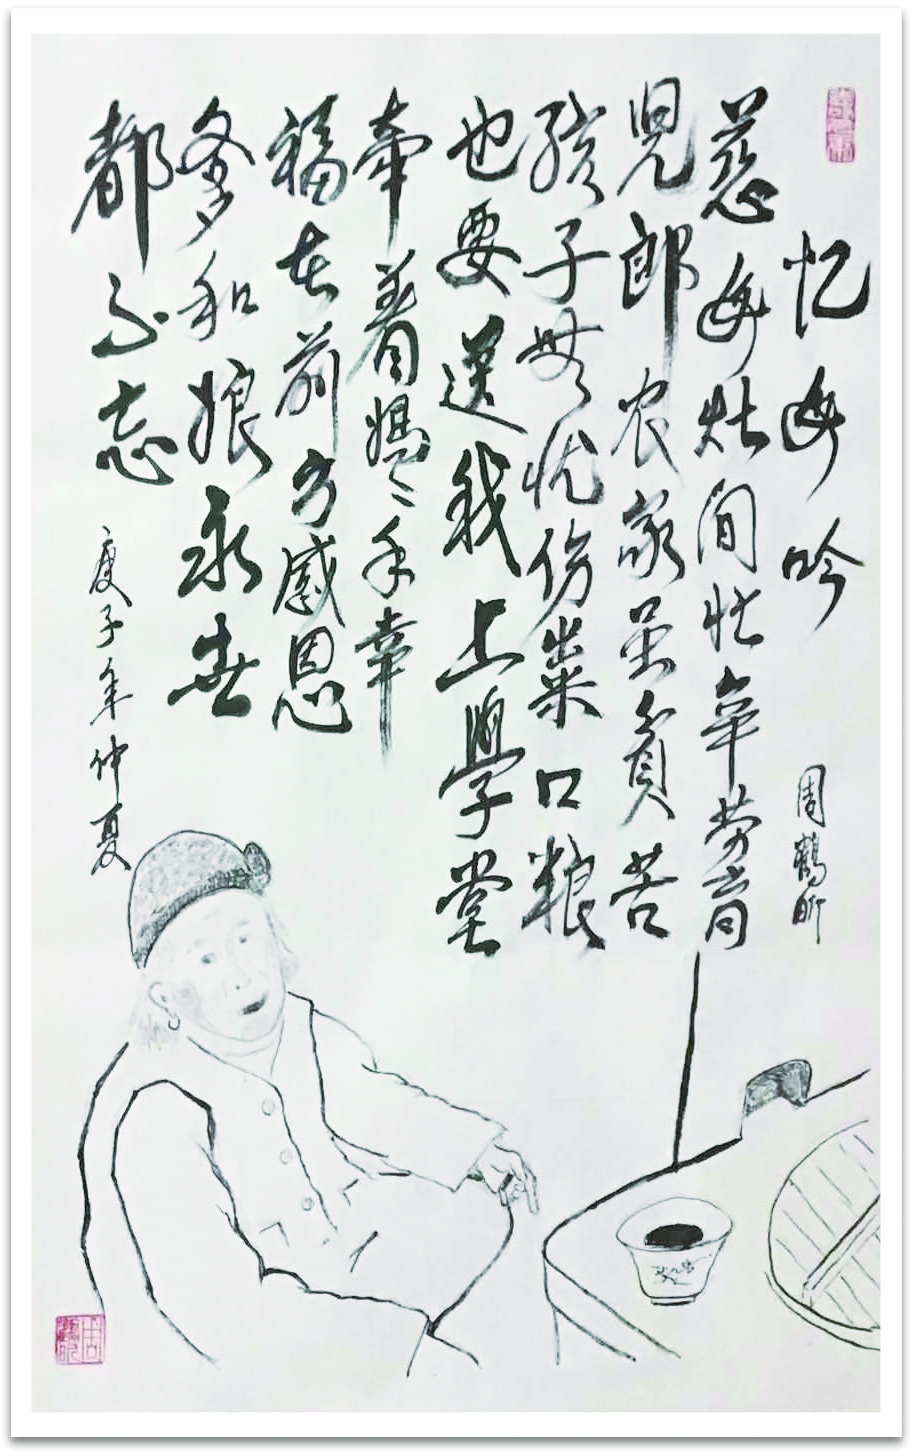 忆母吟
周鹤昕
慈母灶间忙辛劳育
児郎农家虽贫苦
孩子无忧伤粜口粮
也要送我上學堂
牵着媽々手幸
福在前方感恩
爹和娘永世
都不忘
庚子年仲夏